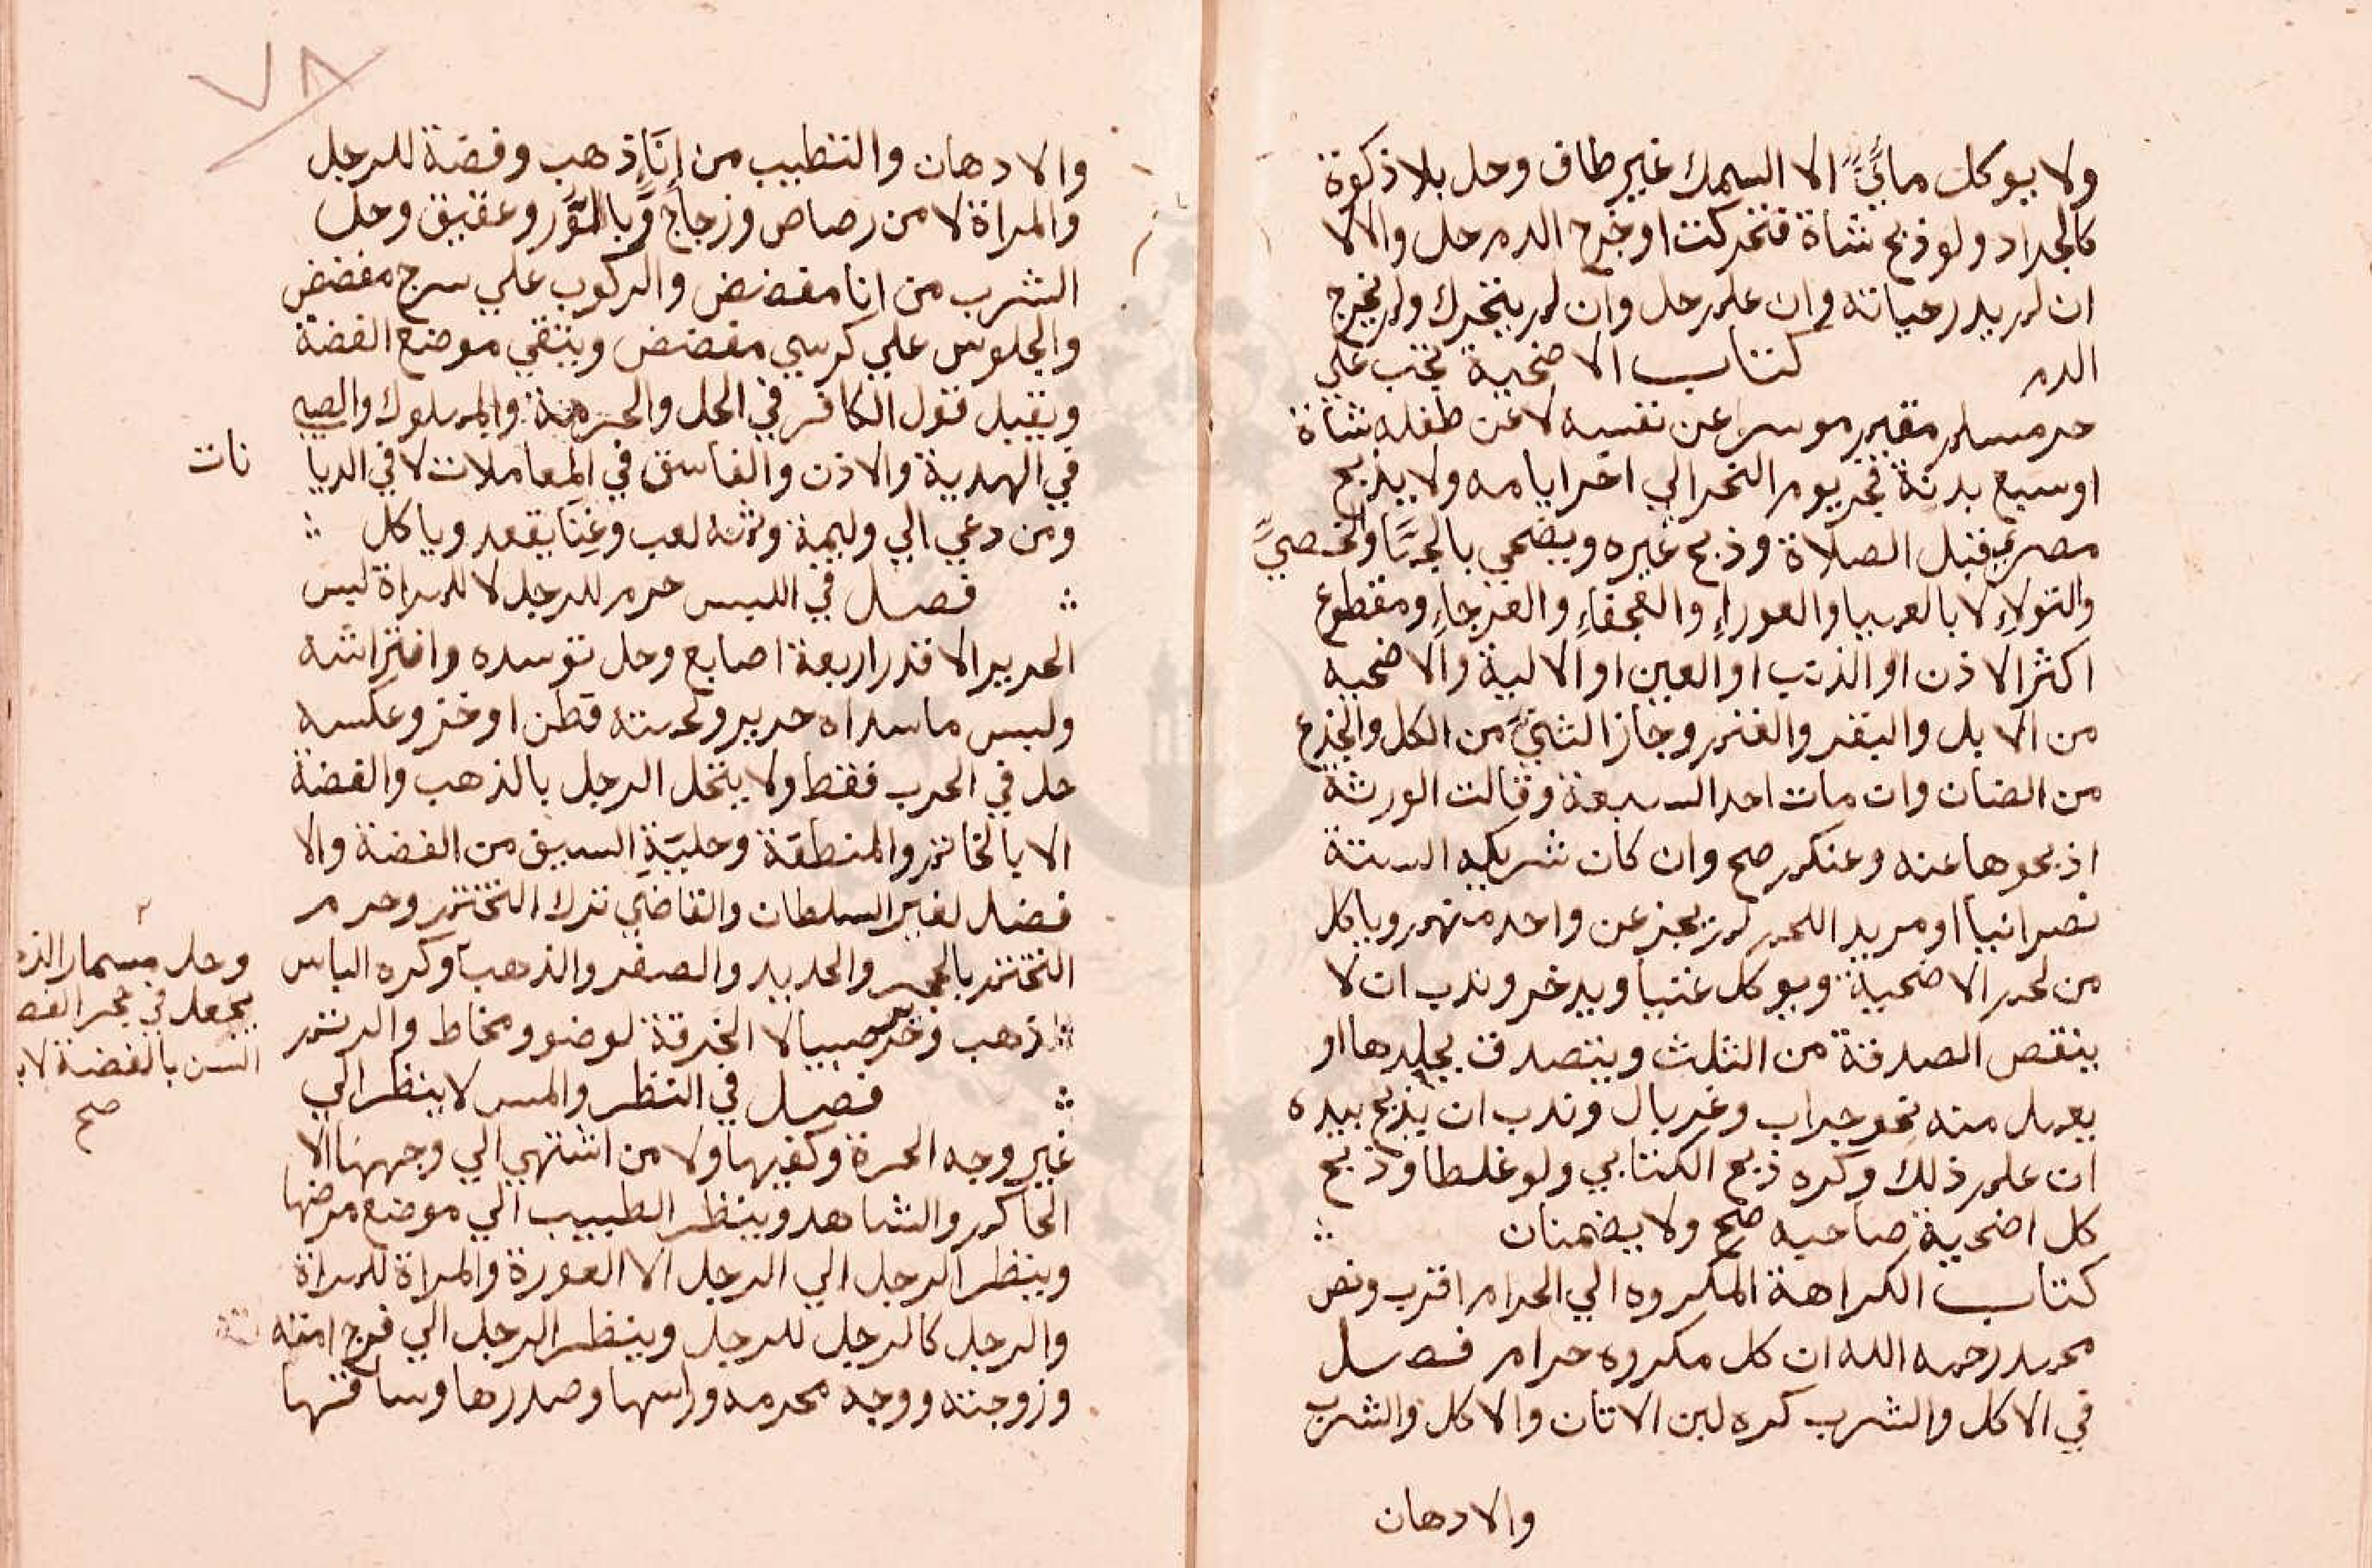 ولا يوكل مائيٌّ الا السمك غير طاف وحل بلا ذكوة
كالجراد ولو ذبح شاة فتحركت او خرج الدم حل والا لا
ان لم يدر حياته وان علم حل وان لم يتحرك ولم يخرج
الدم كتاب الاضحية تجب علي
حر مسلم مقيم موسر عن نفسه لا عن طفله شاة
او سبع بدنة فجر يوم النحر الي اخر ايامه ولا يذبح
مصري قبل الصلاة وذبح غيره ويضحي بالجمّا والخصيّ
والتولاءِ لا بالعميا والعوراءِ والعجفاءِ والعرجاءِ ومقطوع
اكثر الاذن او الذنب او العين او الالية والاضحيه
من الابل والبقر والغنم وجاز الثنيّ من الكل والجذع
من الضان وان مات احد السبعة وقالت الورثة
اذبحوها عنه وعنكم صح وان كان شريك الستة
نصرانيا او مريد اللحم لم يجز عن واحد منهم وياكل
من لحم الاضحية ويوكل غنيا ويدخر وندب ان لا
ينقص الصدقة من الثلث ويتصدق بجلدها او
يعمل منه نحو جراب وغربال وندب ان يذبح بيده
ان علم ذلك وكره ذبح الكتابي ولو غلطا وذبح
كل اضحية صاحبه صح ولا يضمنان
كتاب الكراهة المكروه الي الحرام اقرب ونص
محمد رحمه الله ان كل مكروه حرام فصل
في الاكل والشرب كره لبن الاتان والاكل والشرب
والادهان
٧٨
والادهان والتطيب من اناءِ ذهب وفضة للرجل
والمراة لا من رصاص وزجاج وبلّور وعقيق وحل
الشرب من انا مفضض والركوب علي سرج مفضض
والجلوس علي كرسي مفضض ويتقي موضع الفضة
ويقبل قول الكافر في الحل والحرمة والمملوك والصبي
في الهدية والاذن والفاسق في المعاملات لا في الديا
نات
ومن دعي الي وليمة وثمه لعب وغِنَا يقعد وياكل
فصل في اللبس حرم للرجل لا للمراة لبس
الحرير الا قدر اربعة اصابع وحل توسده وافتراشه
ولبس ما سداه حرير ولحمته قطن او خز وعكسه
حل في الحرب فقط ولا يتحل الرجل بالذهب والفضة
الا بالخاتم والمنطقة وحليةِ السيف من الفضة والا
فضل لغير السلطان والقاضي ترك التختم وحرم
التختم بالحجر والحديد والصفر والذهب وكره الباس
ذهب وحرير صبيا لا الخرقة لوضو ومخاط والرتم
وحل مسمار الذه
يجعل في حجر الفص
السن بالفضة لا
صح
فصل في النظر والمس لا ينظر الي
غير وجه الحرة وكفيها ولا من اشتهي الي وجهها الا
الحاكم والشاهد وينظر الطبيب الي موضع مرضها
وينظر الرجل الي الرجل الا العورة والمراة للمراة
والرجل كالرجل للرجل وينظر الرجل الي فرج امته
وزوجته ووجه محرمه وراسها وصدرها وساقها